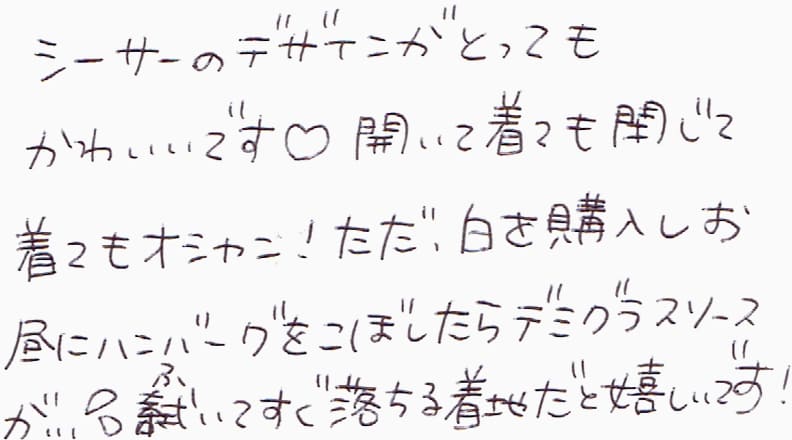 シーサーのデザインがとっても
かわいいです♡ 開いて着ても閉じて
着てもオシャン！ただ、白を購入しお
昼にハンバーグをこぼしたらデミグラスソース
が… ふいてすぐ落ちる着地だと嬉しいです！